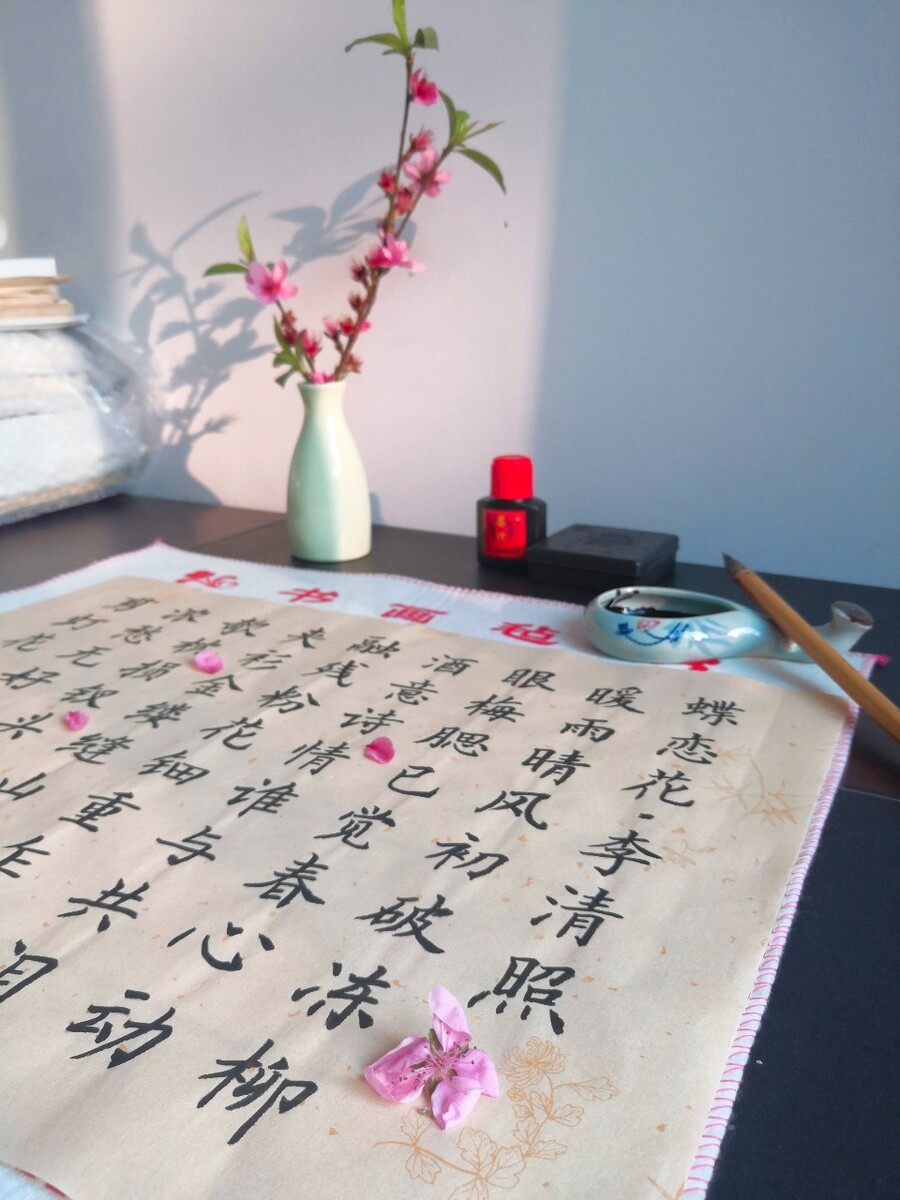 书画毡
蝶恋花·李清照
暖雨晴风初破冻柳
眼梅腮已觉春心动
酒意诗情谁与共
融残粉花钿重乍
夹衫金缕缝山
欹枕损钗头
浓愁无好
剪灯花